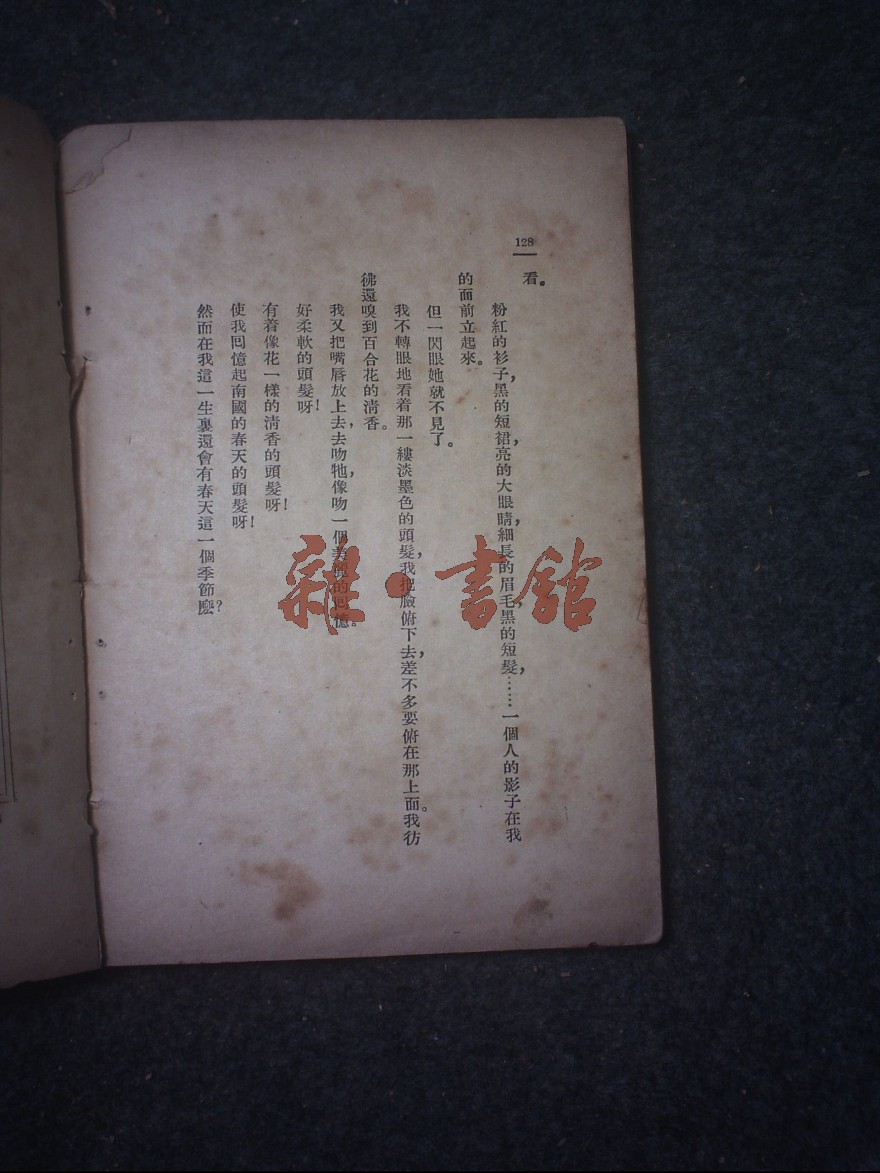 128
看。
粉紅的衫子，黑的短裙，亮的大眼睛，細長的眉毛，黑的短髮，……一個人的影子在我
的面前立起來。
但一閃眼她就不見了。
我不轉眼地看着那一縷淡墨色的頭髮，我把臉俯下去，差不多要俯在那上面。我彷
彿還嗅到百合花的淸香。
我又把嘴唇放上去，去吻牠，像吻一個美麗的回憶。
好柔軟的頭髮呀！
有着像花一樣的淸香的頭髮呀！
使我回憶起南國的春天的頭髮呀！
然而在我這一生裏還會有春天這一個季節麽？
雜·書館